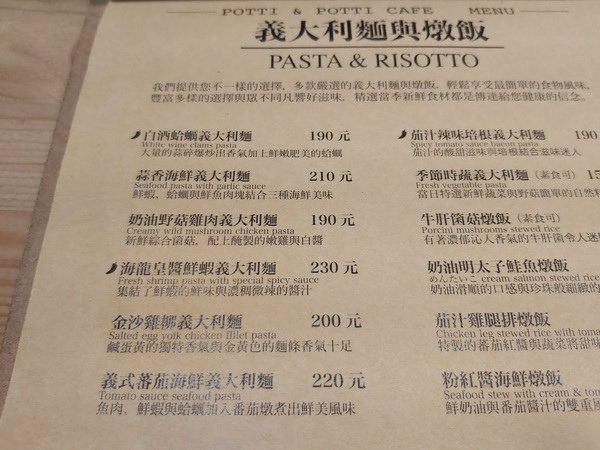 POTTI & POTTI CAFE MENU
義大利麵與燉飯
PASTA & RISOTTO
我們提供您不一樣的選擇，多款嚴選的義大利麵與燉飯，輕鬆享受最簡單的食物風味，
豐富多樣的選擇與眾不同凡響好滋味，精選當季新鮮食材都是傳達給您健康的信念。
白酒蛤蠣義大利麵 190 元
White wine clams pasta
大量的蒜碎爆炒出香氣加上鮮嫩肥美的蛤蠣
蒜香海鮮義大利麵 210 元
Seafood pasta with garlic sauce
鮮蝦、蛤蠣與鮮魚肉塊結合三種海鮮美味
奶油野菇雞肉義大利麵 190 元
Creamy wild mushroom chicken pasta
新鮮綜合菌菇、配上醃製的嫩雞與白醬
海龍皇醬鮮蝦義大利麵 230 元
Fresh shrimp pasta with special spicy sauce
集結了鮮蝦的鮮味與濃稠微辣的醬汁
金沙雞柳義大利麵 200 元
Salted egg yolk chicken fillet pasta
鹹蛋黃的獨特香氣與金黃色的麵條香氣十足
義式蕃茄海鮮義大利麵 220 元
Tomato sauce seafood pasta
魚肉、鮮蝦與蛤蠣加入番茄燉煮出鮮美風味
茄汁辣味培根義大利麵 190
Spicy tomato sauce bacon pasta
茄汁的酸甜滋味與培根結合滋味迷人
季節時蔬義大利麵 (素食可) 15
Fresh vegetable pasta
當日特選新鮮蔬菜與野菇簡單的自然
牛肝菌菇燉飯 (素食可)
Porcini mushrooms stewed rice
有著濃郁沁人香氣的牛肝菌令人迷
奶油明太子鮭魚燉飯
めんたいこ cream salmon stewed rice
奶油滑順的口感與珍珠般細緻的
茄汁雞腿排燉飯
Chicken leg stewed rice with toma
特製的蕃茄紅醬與蔬菜將滋味
粉紅醬海鮮燉飯
Seafood stew with cream & tom
鮮奶油與番茄醬汁的雙重